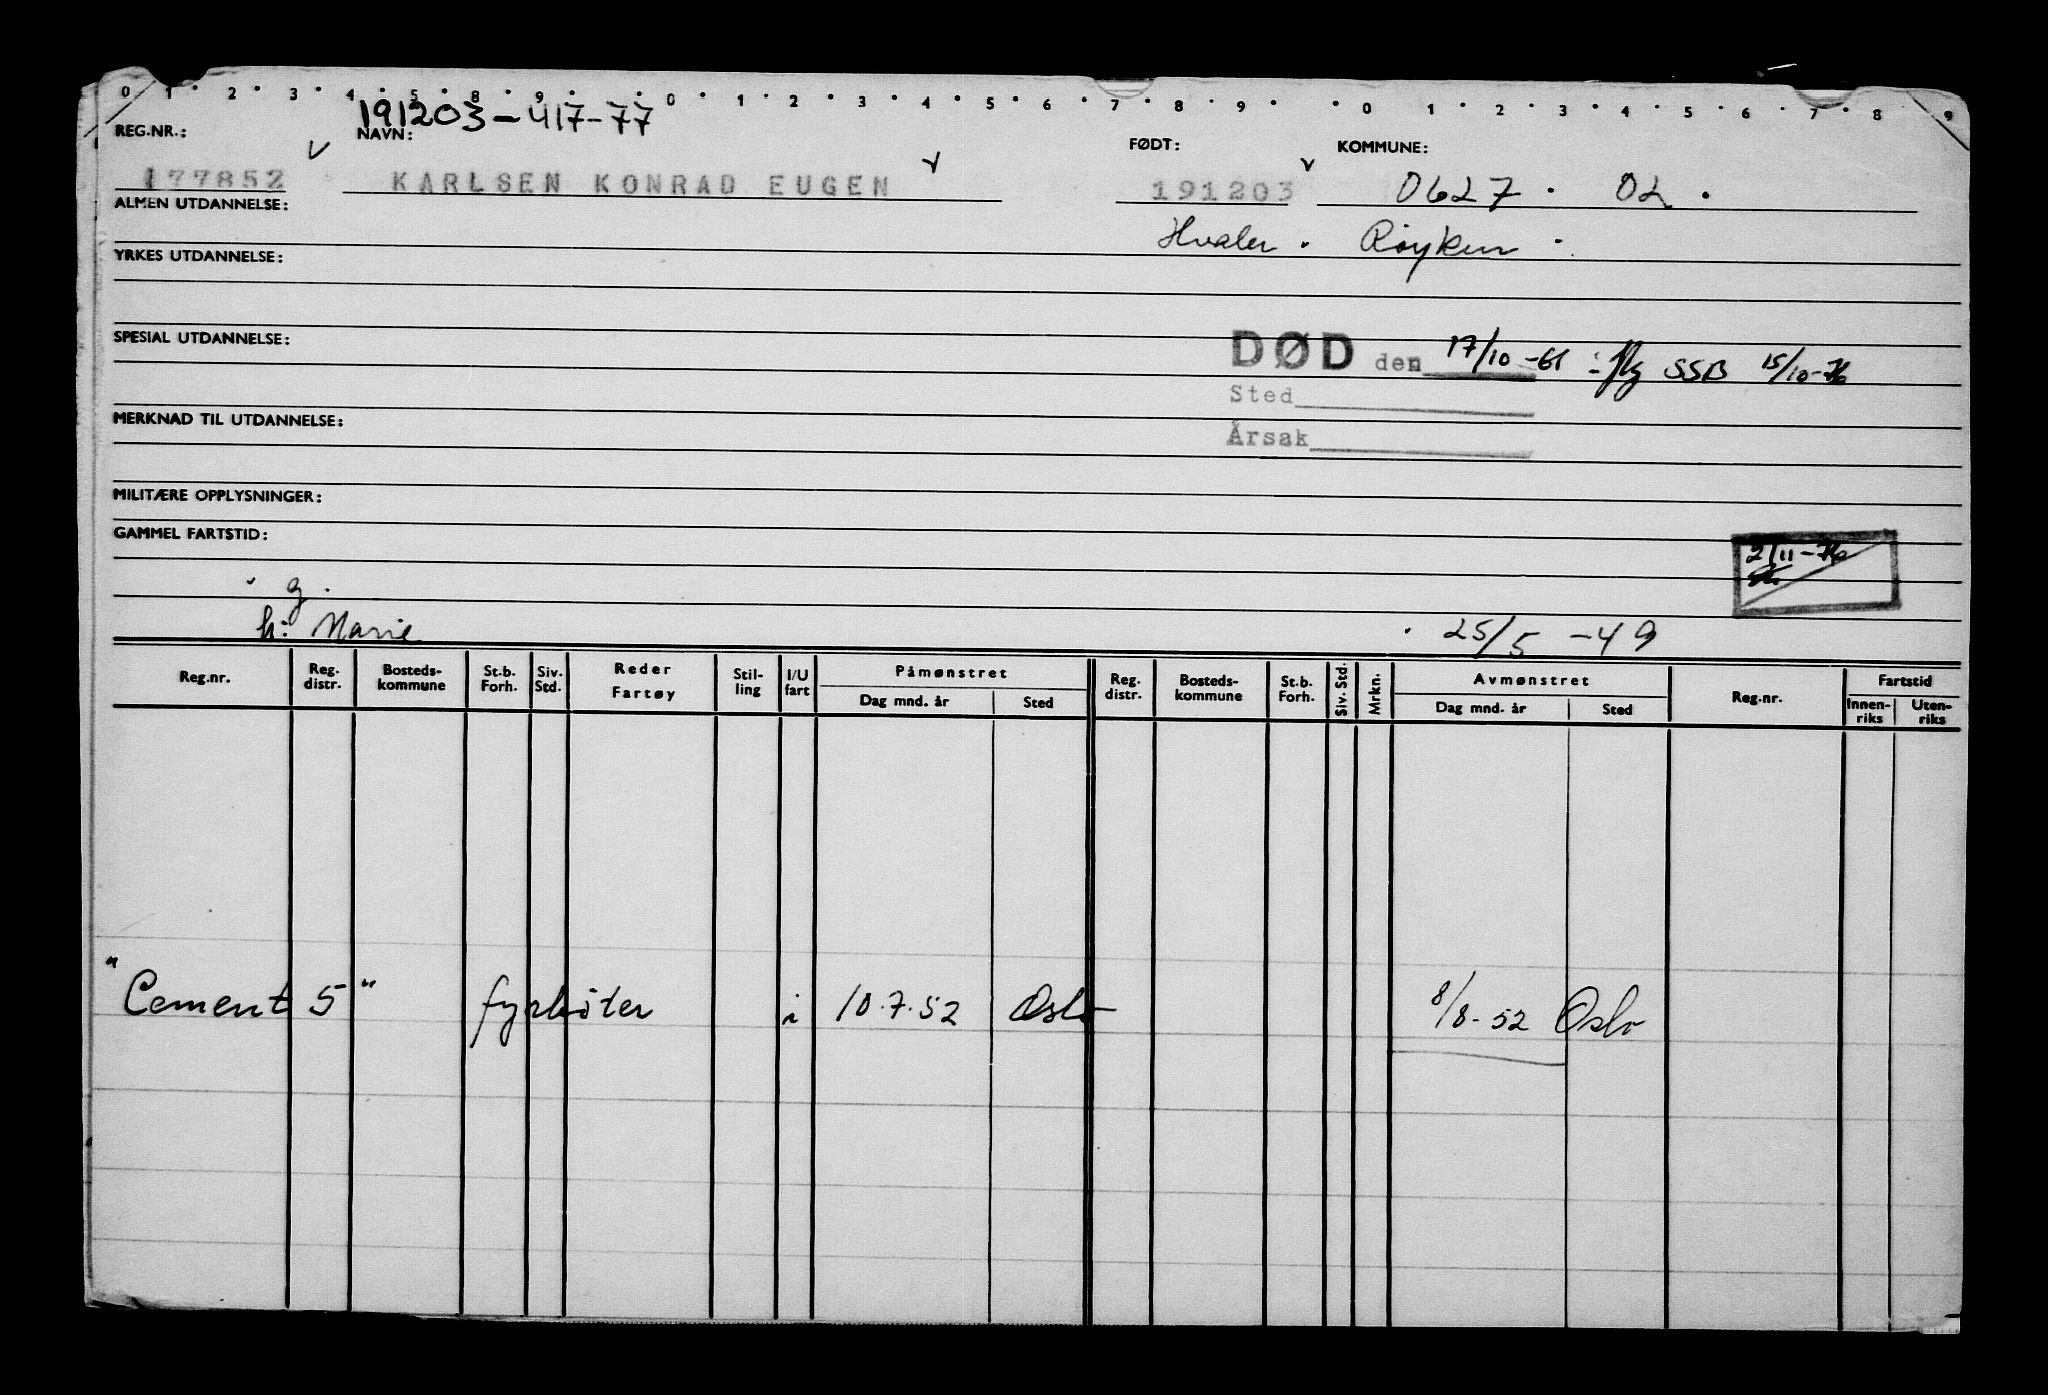 0 1 2 3 4 5 8 9 0 1 2 3 4 5 6 7 8 9 0 1 2 3 4 5 6 7 8 9
191203-417-77
REG.NR.: NAVN: FØDT: KOMMUNE:
177852 KARLSEN KONRAD EUGEN 191203 0627 . 02 .
ALMEN UTDANNELSE:
Hvaler . Røyken .
YRKES UTDANNELSE:
SPESIAL UTDANNELSE:
DØD den 17/10-61 SSB 15/10-76
Sted
Årsak
MERKNAD TIL UTDANNELSE:
MILITÆRE OPPLYSNINGER:
GAMMEL FARTSTID:
2/11-76
g.
h: Marie 25/5-49
Reg.nr. Reg. distr. Bosteds-kommune St.b. Forh. Siv. Std. Reder Fartøy Stil-ling I/U fart Påmønstret Reg. distr. Bosteds-kommune St.b. Forh. Siv. Std. Mrkn. Avmønstret Reg.nr. Fartstid
Dag mnd. år Sted Dag mnd. år Sted Innen-riks Uten-riks
"Cement 5" fyrbøter i 10.7.52 Oslo 8/8-52 Oslo